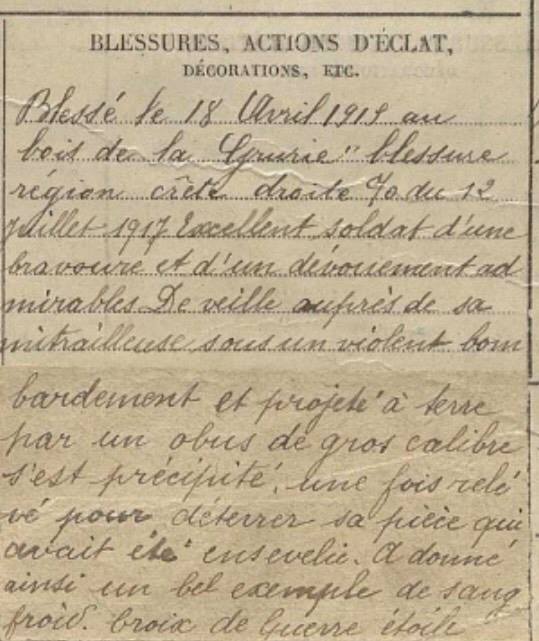 BLESSURES, ACTIONS D'ÉCLAT,
DÉCORATIONS, ETC.
Blessé le 18 Avril 1915 au
bois de la Grurie" blessure
région crête droite %o du 12
Juillet 1917 Excellent soldat d'une
bravoure et d'un dévouement ad
mirables De veille auprès de sa
mitrailleuse sous un violent bom
bardement et projeté à terre
par un obus de gros calibre
s'est précipité, une fois rele
vé pour déterrer sa pièce qui
avait été ensevelie. A donné
ainsi un bel exemple de sang
froid. Croix de Guerre étoile